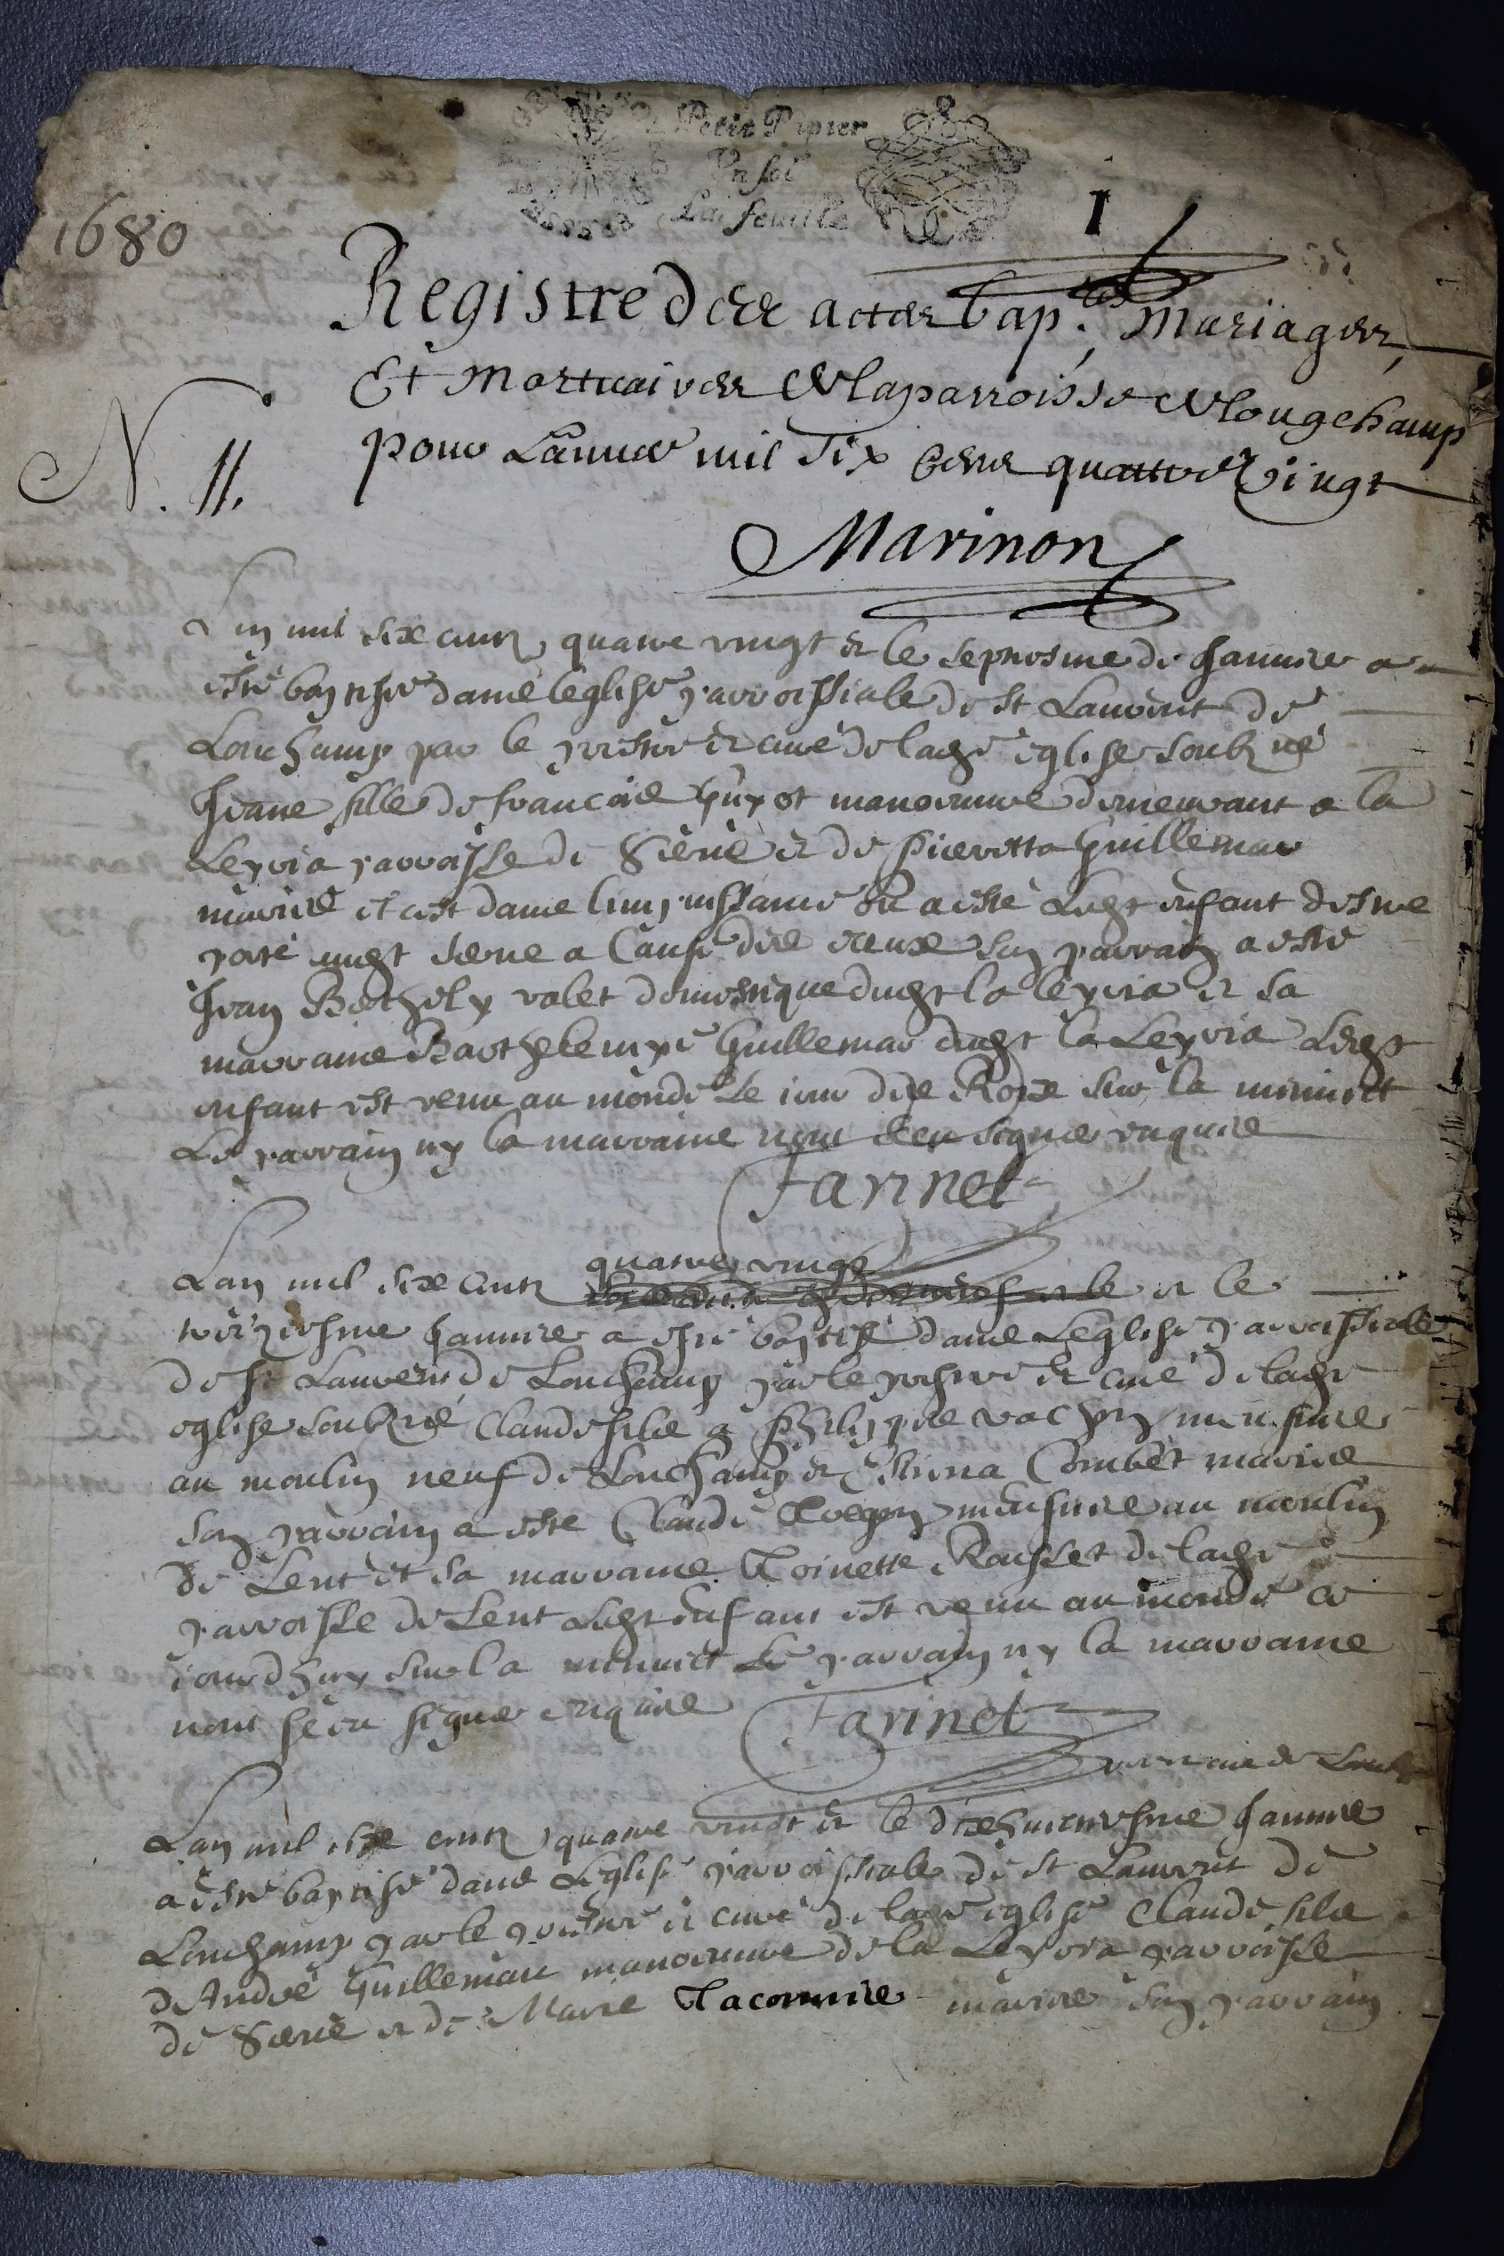 Petit Papier
Un sol
La feuille
I
1680
Registre des actes bap.es, Mariages,
Et Mortuaires de la parroisse de longchamp
N. 11.
pour Lannee mil six cens quattre vingt
Marinon
Lan mil sixe cents quatre vingt et le septiesme de Janvier a
esté baptisée dans leglise parroissiale de st Laurent de
Lonchamp par le prestre et curé de ladte eglise soubzné
Jeane fille de francois Guyot manoeuvre demeurant a la
Leyria parroisse de Siene et de Pierretta Guillemau
mariés et cest dans limpuissance ou a esté Ledt enfant destre
porté audt siene a Cause des eaux son parrain a esté
Jean Bethely valet domestique dudt la leyria et sa
marraine Barthelemye Guillemau dudt la Leyria Ledt
enfant est venu au monde le jour des Roys sur la minuict
Le parrain ny la marraine nont sceu signer enquis
Farinet
quatre vingt
Lan mil sixe cents et le
treiziesme Janvier a esté baptisé dans Leglise parroissiale
de st Laurent de Lonchamp par le prestre et curé de ladte
eglise soubzné Claude filie a Philippe vachon meusnier
au moulin neuf de Lonchamp et Combet mariés
son parrain a esté Claude meusnier au moulin
de Lent et sa marraine Toinette Rousset de ladte
parroisse de Lent Ledt enfant est venu au monde ce
jourdhuy sur la minuict Le parrain ny la marraine
nont sceu signer enquis
Farinet
curé de
Lan mil sixe cents quatre vingt et le dixehuictiesme Janvier
a esté baptisé dans Leglise parroissiale de st Laurent de
Lonchamp par le prestre et curé de ladte eglise Claude filie
de André Guillemau manoeuvre de la Leyria parroisse
de Siene et de Marie Tacornite mariés son parrain